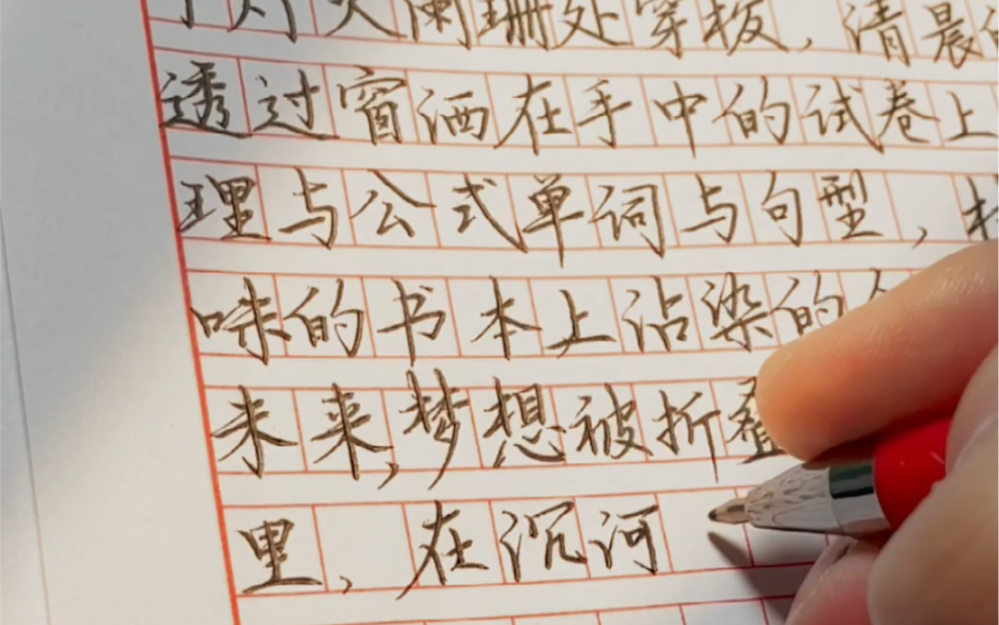 灯火阑珊处穿梭，清晨
透过窗洒在手中的试卷上
理与公式单词与句型，
味的书本上沾染的
未来，梦想被折叠
里，在沉河